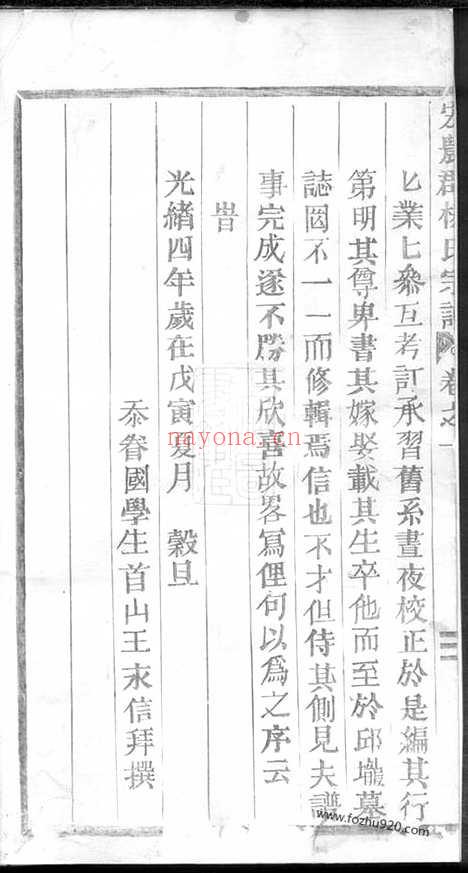 宏農郡楊氏宗譜 卷之一
匕業匕叅互考訂承習舊系晝夜校正於是編其行
第明其尊卑書其嫁娶載其生卒他而至於邱壠墓
誌罔不一一而修輯焉信也不才但侍其側見夫譜
事完成遂不勝其欣喜故畧寫俚句以爲之序云
旹
光緒四年歲在戊寅夏月 穀旦
忝眷國學生首山王永信拜撰
mayona.cn
www.fozhu920.com